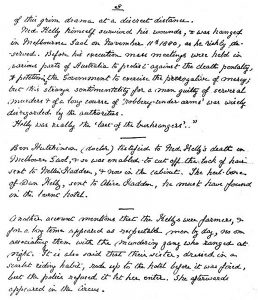 of this grim drama at a discreet distance.
Ned Kelly himself survived his wounds, & was hanged
in Melbourne Gaol on November 11th 1880, as he richly de-
served. Before his execution mass meetings were held in
various parts of Australia to protest against the death penalty
& petition the Government to exercise the prerogative of mercy;
but this strange sentimentality for a man guilty of several
murders & of a long course of "robbery-under-arms" was wisely
disregarded by the authorities.
Kelly was really the "last of the bushrangers"."
Ben Hutchinson (doctor) testified to Ned Kelly's death in
Melbourne Gaol, & so was enabled to cut off the lock of hair
sent to Haddon, & now in the cabinet. The heel-bone
of Dan Kelly, sent to Alice Haddon, he must have found
on the burnt hotel.
Another account mentions that the Kellys were farmers, &
for a long time appeared as respectable men by day, no one
associating them with the murdering gang who ranged at
night. It is also said that their sister, dressed in a
riding habit, rode up to the hotel before it was fired,
but the police refused to let her enter. She afterwards
appeared in the circus.